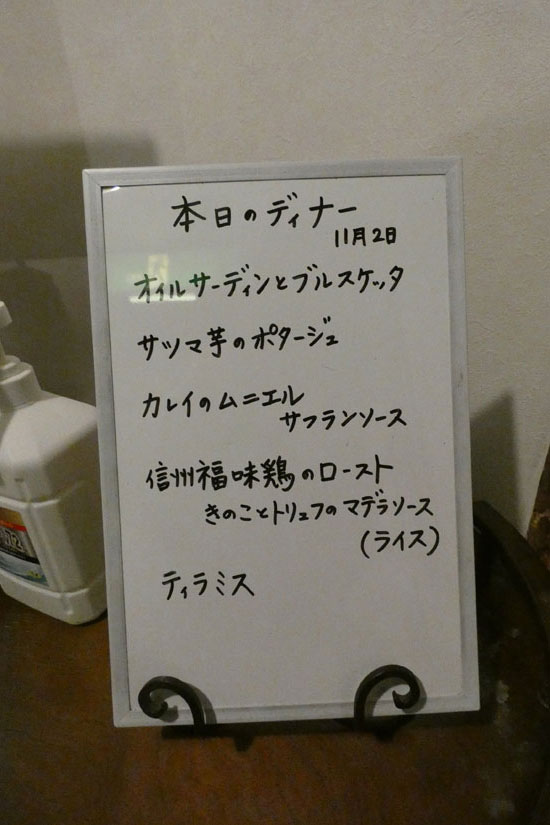 本日のディナー
11月2日
オイルサーディンとブルスケッタ
サツマ芋のポタージュ
カレイのムニエル
サフランソース
信州福味鶏のロースト
きのことトリュフのマデラソース
(ライス)
ティラミス